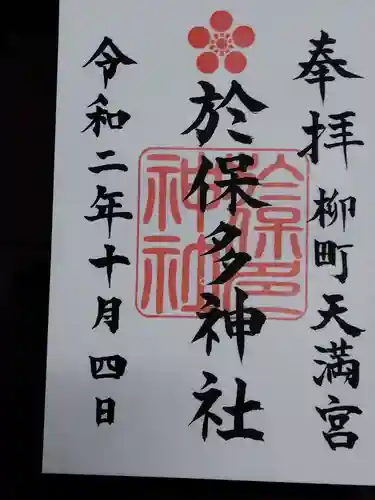 奉拝 柳町天満宮
於保多神社
於保多
神社
令和二年十月四日